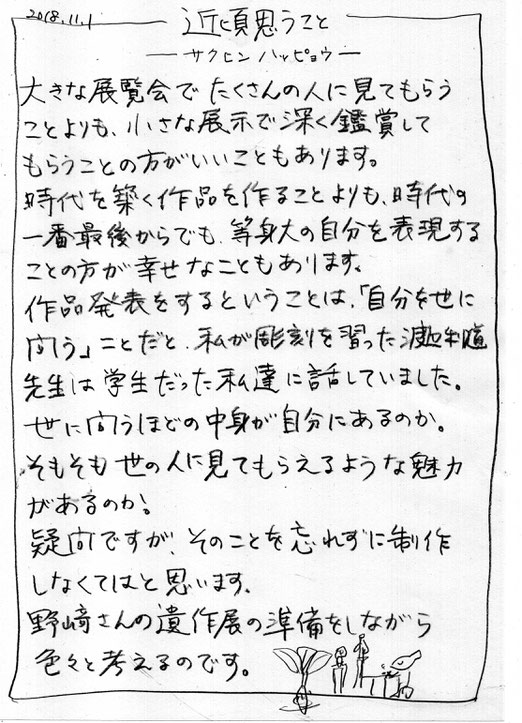 2018.11.1
近頃思うこと
―サクヒンハッピョウ―
大きな展覧会でたくさんの人に見てもらう
ことよりも、小さな展示で深く鑑賞して
もらうことの方がいいこともあります。
時代を築く作品を作ることよりも、時代の
一番最後からでも、等身大の自分を表現する
ことの方が幸せなこともあります。
作品発表をするということは、「自分を世に
問う」ことだと、私が彫刻を習った
先生は学生だった私達に話していました。
世に問うほどの中身が自分にあるのか。
そもそも世の人に見てもらえるような魅力
があるのか。
疑問ですが、そのことを忘れずに制作
しなくてはと思います。
野﨑さんの遺作展の準備をしながら
色々と考えるのです。